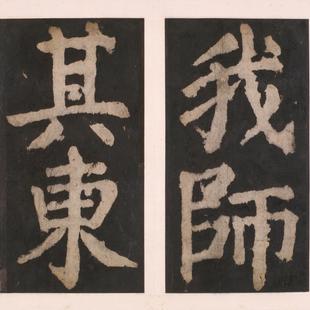 我師
其東